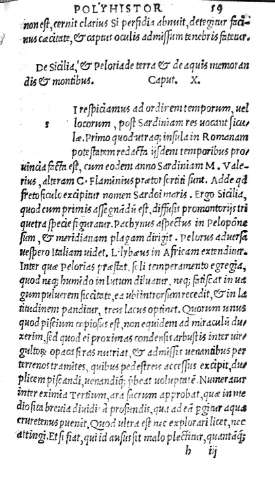 POLYHISTOR 59
non est, cernit clarius. Si perfidia abnuit, detegitur faci-
nus cæcitate, & captus oculis admissum tenebris fatetur.
De Sicilia, & Peloriade terra & de aquis memoran
dis & montibus. Caput. X.
I respiciamus ad ordinem temporum, uel
S locorum, post Sardiniam res uocant sicu-
læ. Primo quod utraq; insula in Romanam
potestatem redacta iisdem temporibus pro
uincia facta est, cum eodem anno Sardiniam M. Vale-
rius, alteram C. Flaminius prætor sortiti sunt. Adde qd
freto siculo excipitur nomen Sardoi maris. Ergo Sicilia,
quod cum primis assignādū est, diffusis promontorijs tri
quetra specie figuratur. Pachynus aspectus in Peloponē
sum, & meridianam plagam dirigit. Pelorus aduersa
uespero Italiam uidet. Lilybæus in Africam extenditur.
Inter quæ Pelorias præstat, soli temperamento egregia,
quod neq; humido in lutum diluatur, neq; fatiscat in ua
gum puluerem siccitate, ea ubi introrsum recedit, & in la
titudinem panditur, tres lacus optinet. Quorum unus
quod piscium copiosus est, non equidem ad miraculū du-
xerim, sed quod ei proximas condensa arbustis inter uir
gultorū opaca feras nutriat, & admissis uenantibus per
terrenos tramites, quibus pedestres accessus excipit, du-
plicem piscandi, uenandiq; p̄beat uoluptatē. Numeratur
inter eximia Tertium, ara sacrum approbat, quæ in me
dio sita breuia diuidit a profundis, qua ad eā pgitur aqua
cruretenus peruenit. Quod ultra est nec explorari licet, nec
attingi. Et si fiat, qui id ausus sit malo plectitur, quantāq;
h ij